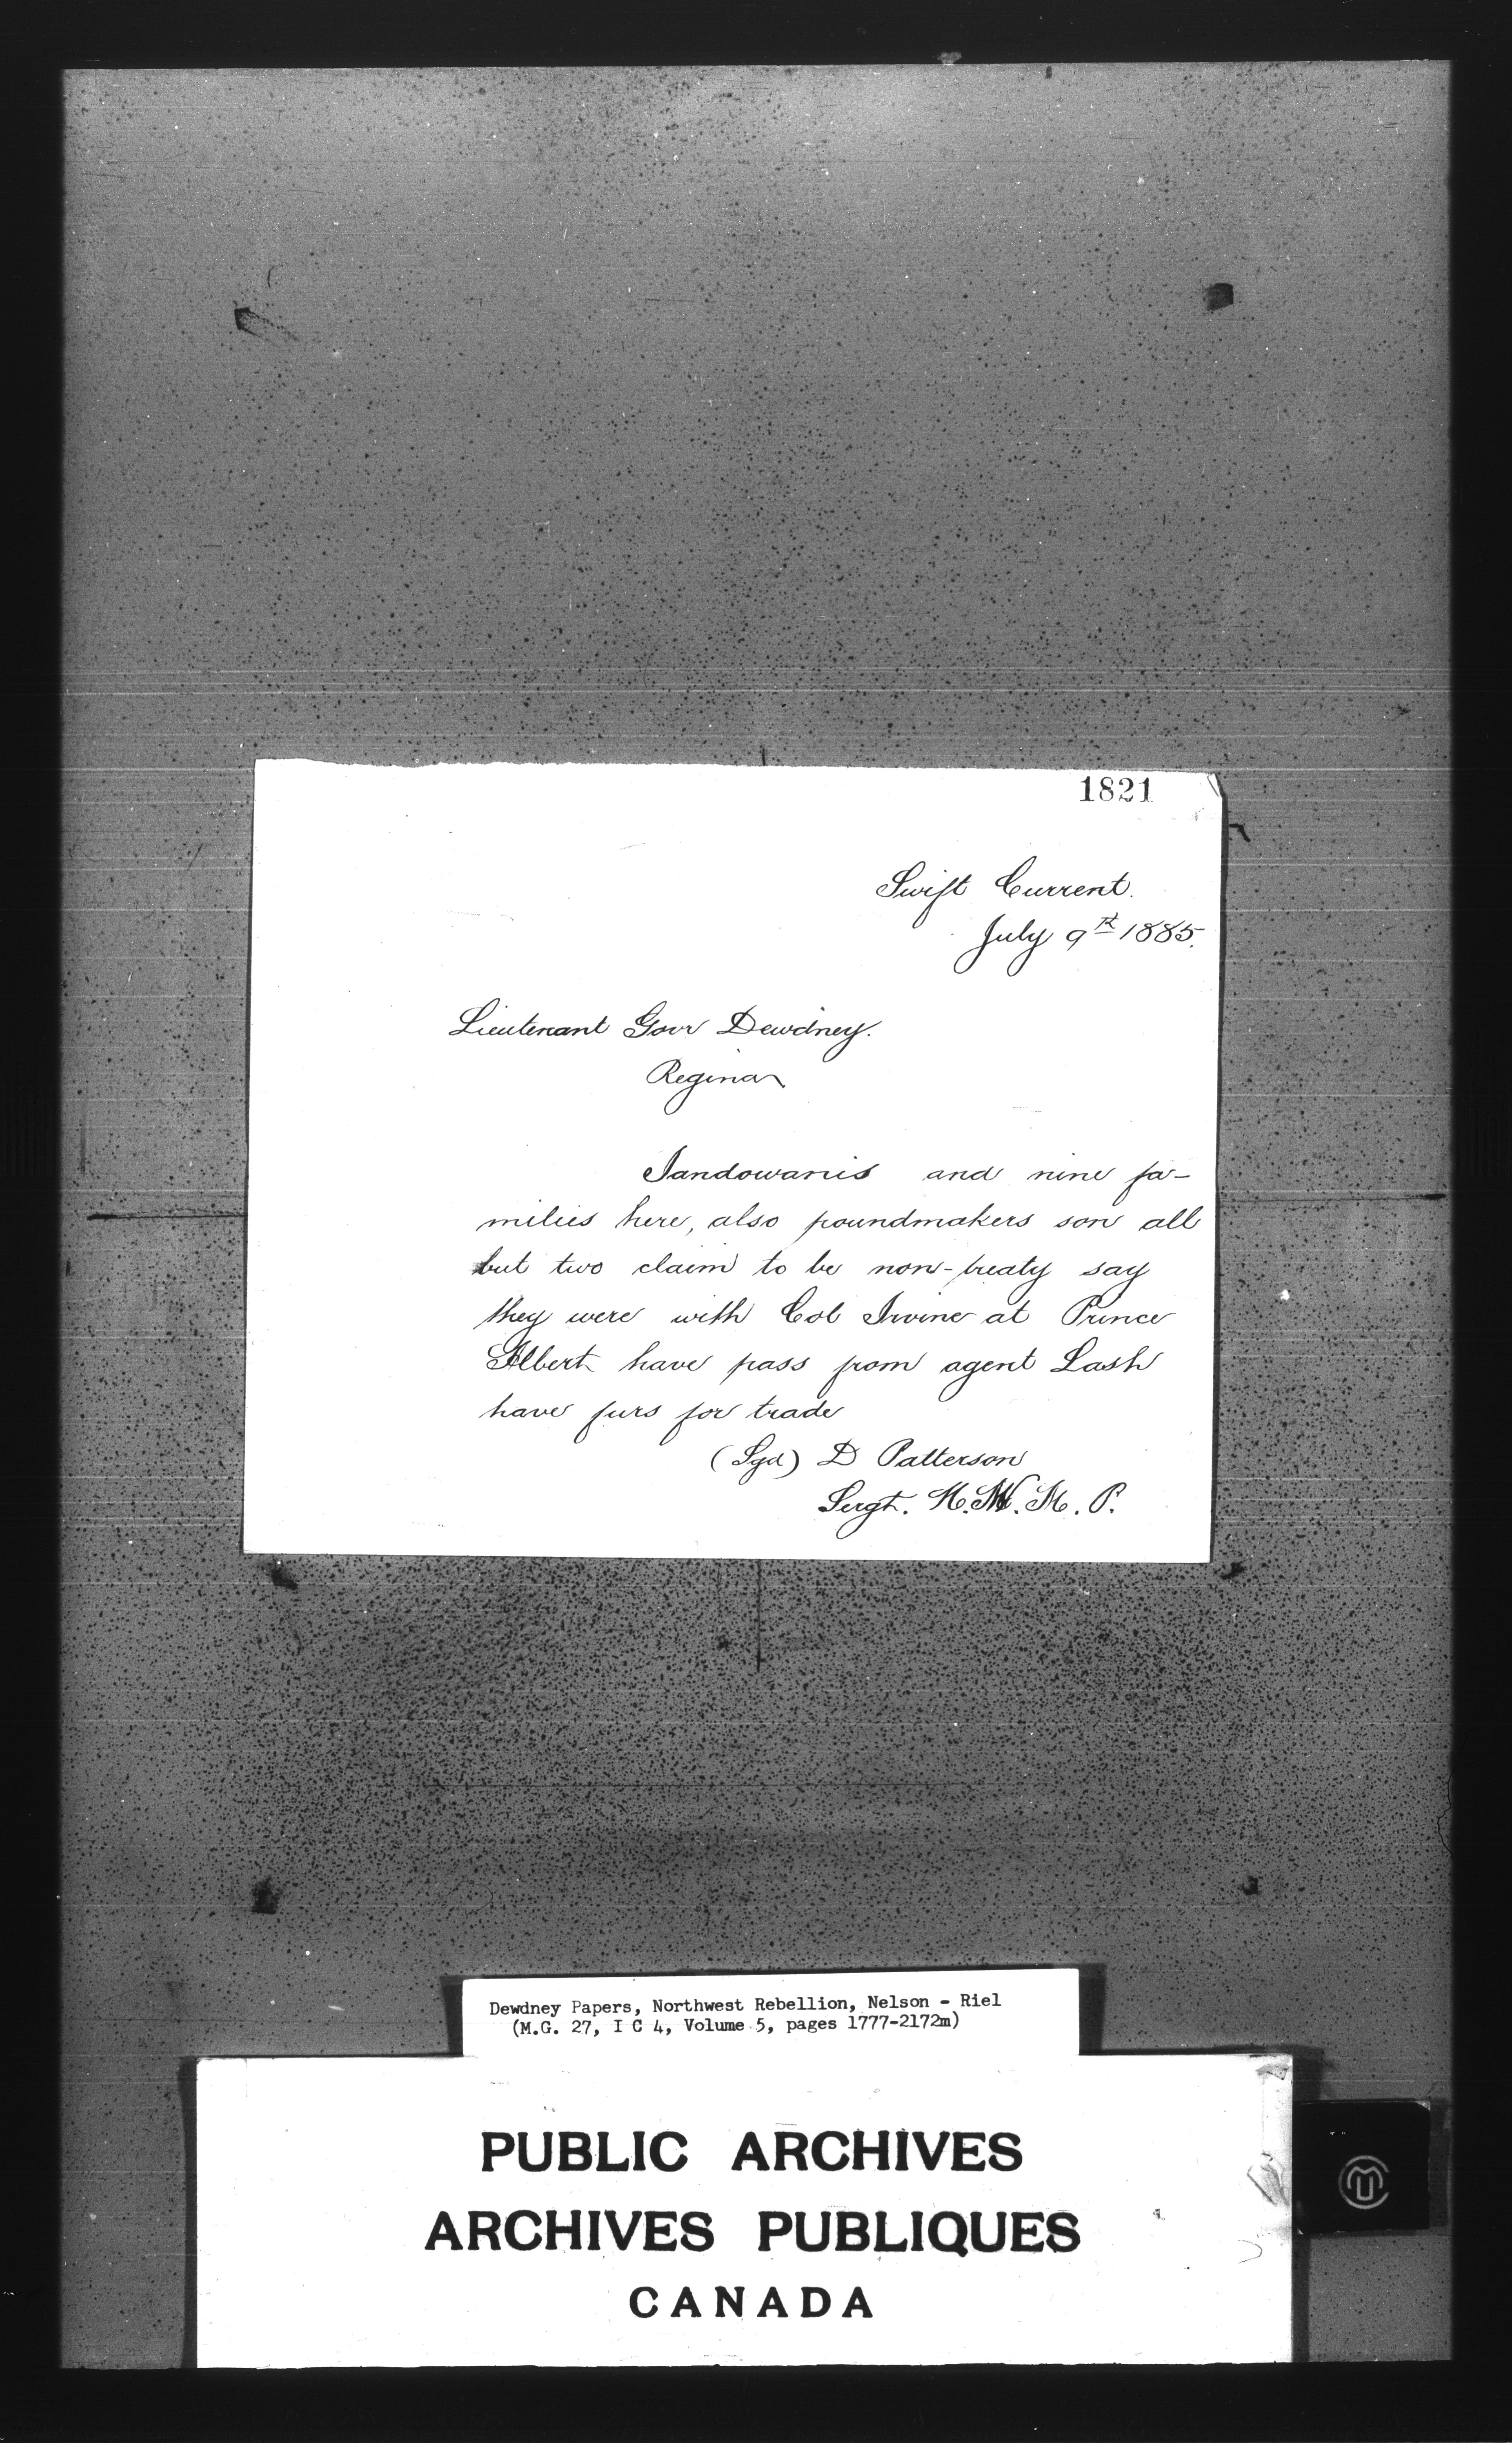 1821
Swift Current.
July 9th 1885.
Lieutenant Govr Dewdney.
Regina
Sandowanis and nine fa-
milies here, also poundmakers son all
but two claim to be non-treaty say
they were with Col Irvine at Prince
Albert have pass from agent Lash
have furs for trade
(Sgd) D Patterson
Sergt. N.W.M.P.
Dewdney Papers, Northwest Rebellion, Nelson - Riel
(M.G. 27, I C 4, Volume 5, pages 1777-2172m)
PUBLIC ARCHIVES
ARCHIVES PUBLIQUES
CANADA